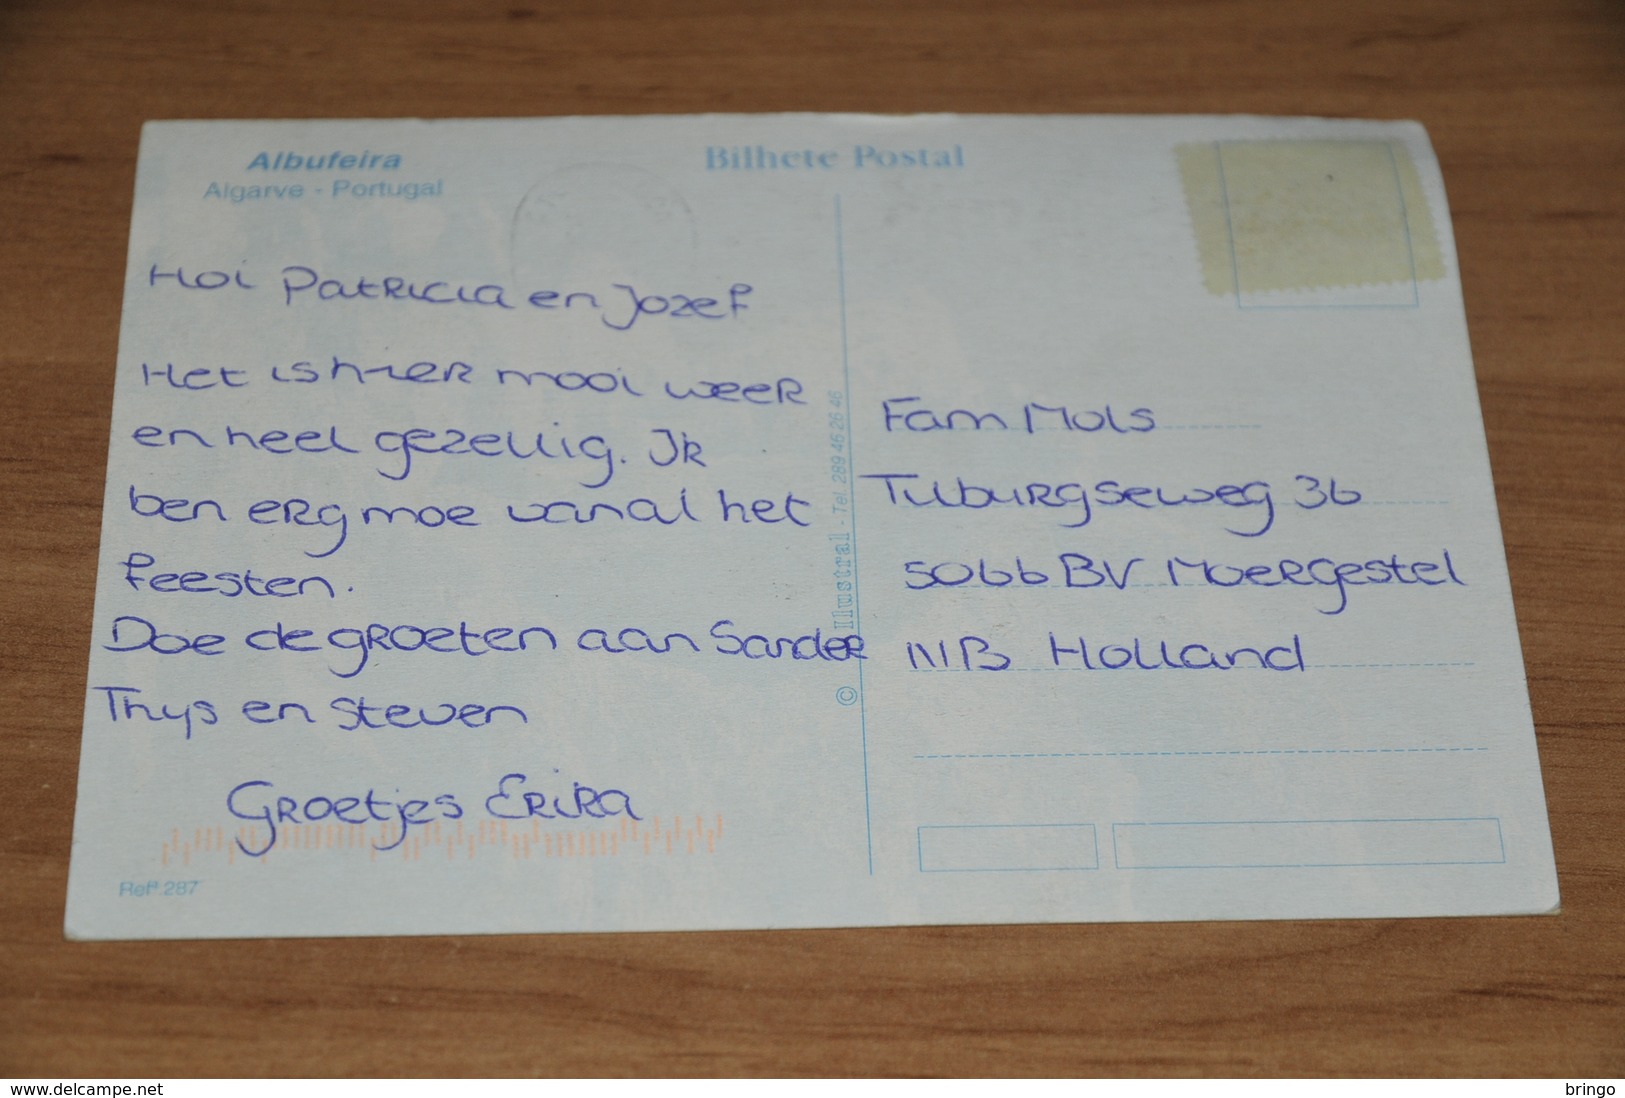 Albufeira
Algarve - Portugal
Bilhete Postal
Hoi Patricia en Jozef
Het is hier mooi weer
en heel gezellig. Ik
ben erg moe vanal het
feesten.
Doe de groeten aan Sander
Thys en Steven
Groetjes Erika
Refª 287
© Ilustral - Tel. 289 46 26 46
Fam Mols
Tilburgseweg 36
5066 BV Moergestel
NB Holland
www.delcampe.net
bringo